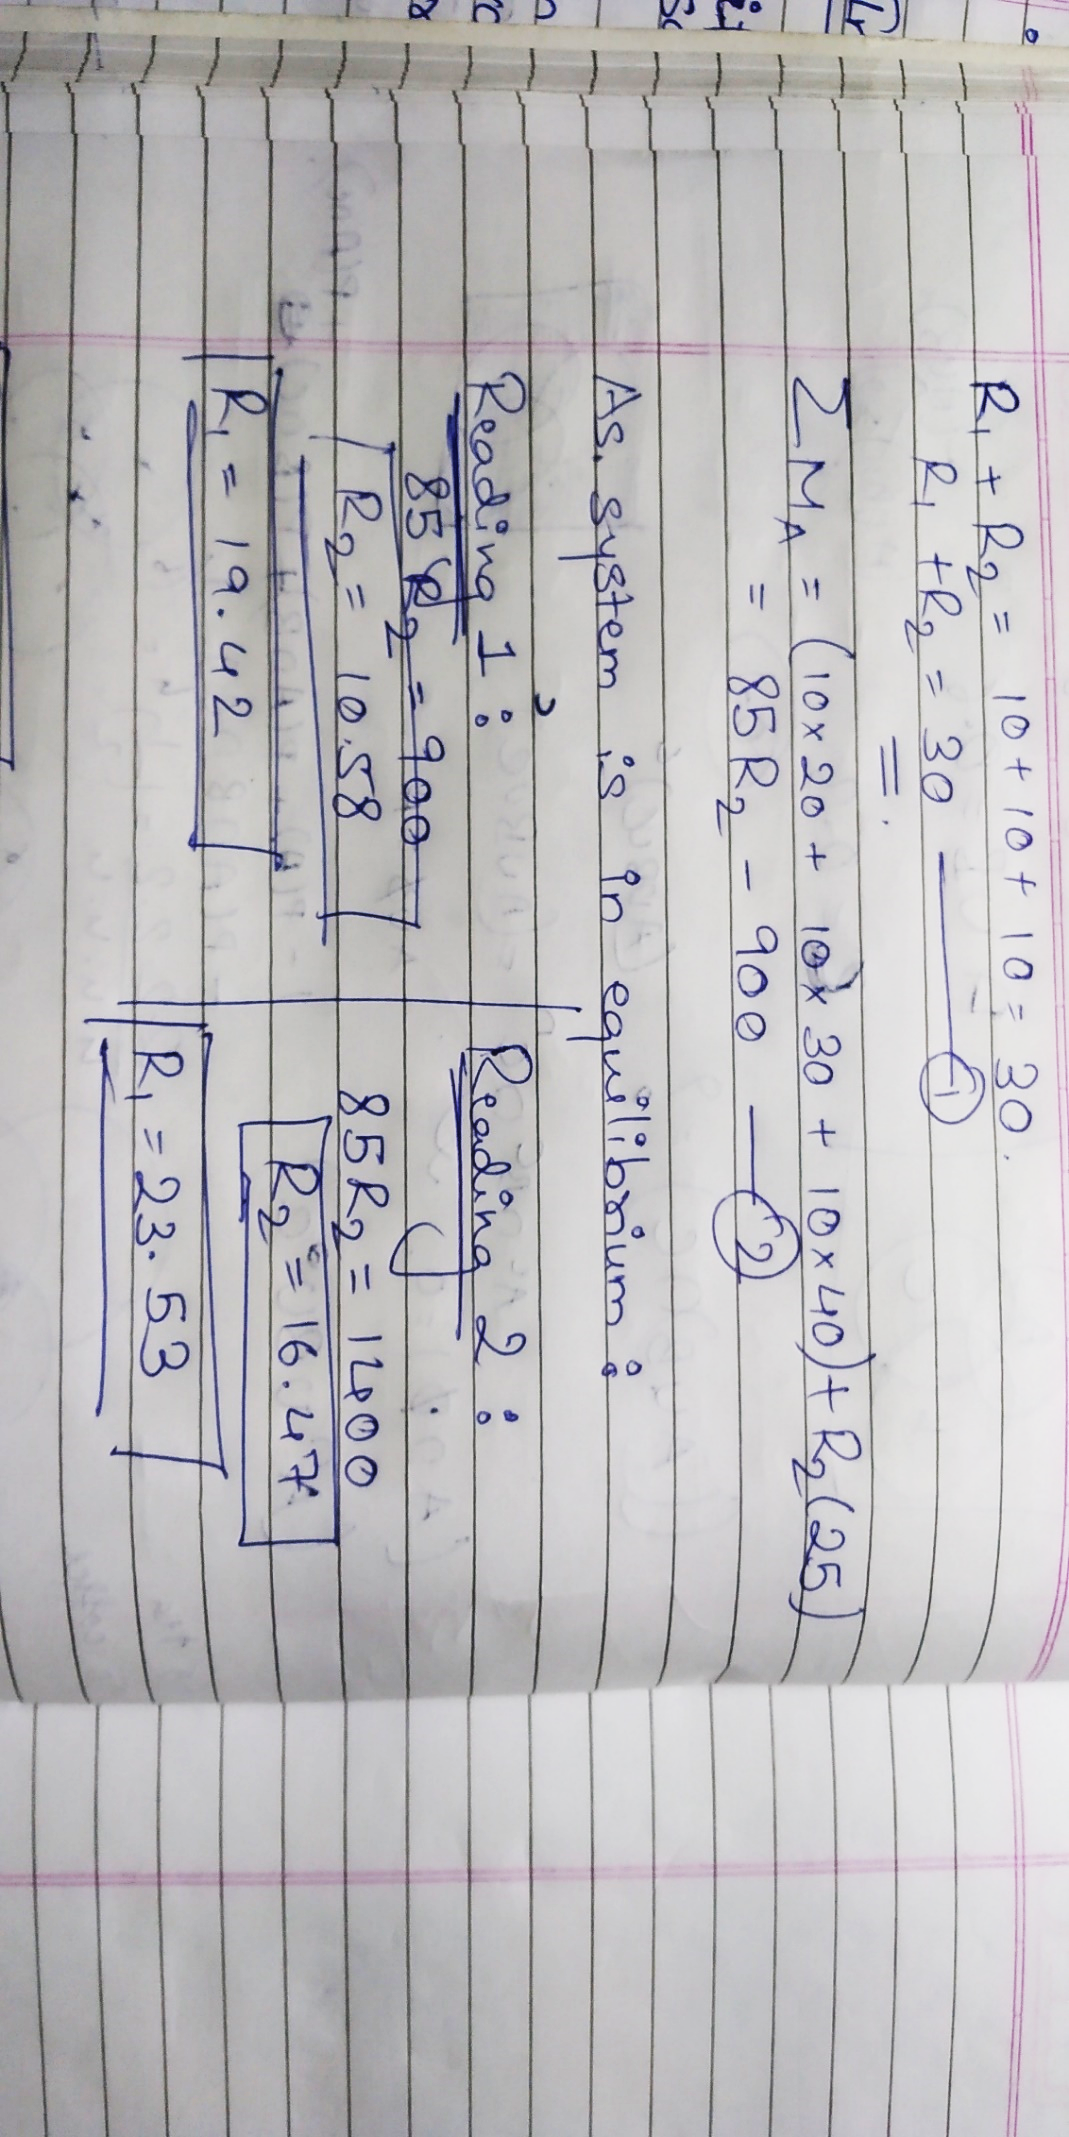 R₁ + R₂ = 10 + 10 + 10 = 30.
R₁ + R₂ = 30 — ①
=.
ΣM_A = (10×20 + 10×30 + 10×40) + R₂(25)
= 85R₂ - 900 — ②
As. system is in equilibrium :
Reading 1 :
85 R₂ = 900
R₂ = 10.58
R₁ = 19.42
Reading 2 :
85R₂ = 1400
R₂ = 16.47
R₁ = 23.53